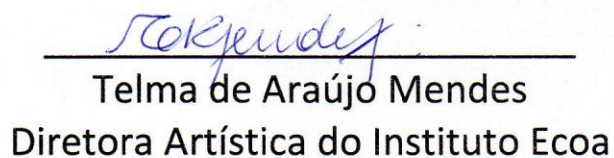 Telma de Araújo Mendes
Diretora Artística do Instituto Ecoa